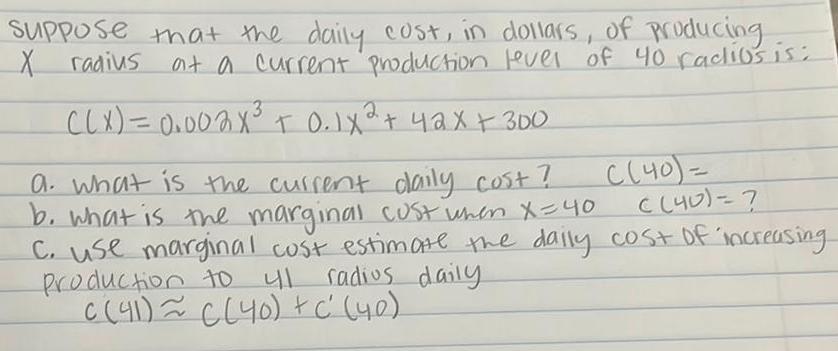 suppose that the daily cost, in dollars, of producing
X radius at a current production level of 40 radios is:
C(X) = 0.002x³ + 0.1x² + 42x + 300
a. what is the current daily cost? C(40) =
b. what is the marginal cost when x = 40 C(40) = ?
C. use marginal cost estimate the daily cost of increasing
production to 41 radios daily
C(41) ≈ C(40) + C'(40)